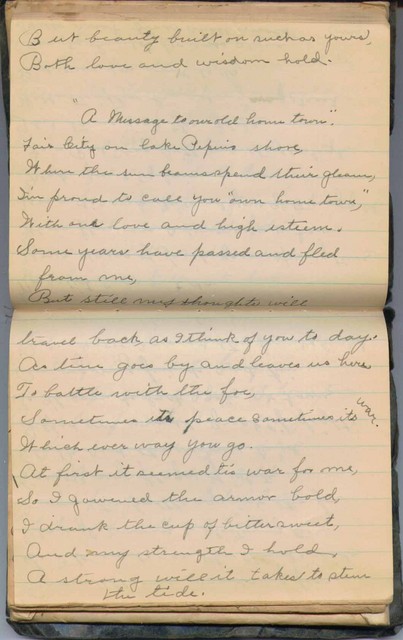 But beauty built on such as yours,
Both love and wisdom hold.
"A Message to our old home town".
Fair City on Lake Pepin's shore,
Where the sun beams spend their gleam,
I'm proud to call you "own home town,"
With one love and high esteem.
Some years have passed and fled
from me,
But still my thoughts will
travel back as I think of you to day.
As time goes by and leaves us here
To battle with the foe,
Sometimes its peace sometimes its war.
Which ever way you go.
At first it seemed tis war for me,
So I gowened the armor bold,
I drank the cup of bittersweet,
And my strength I hold.
A strong will it takes to stem
the tide.